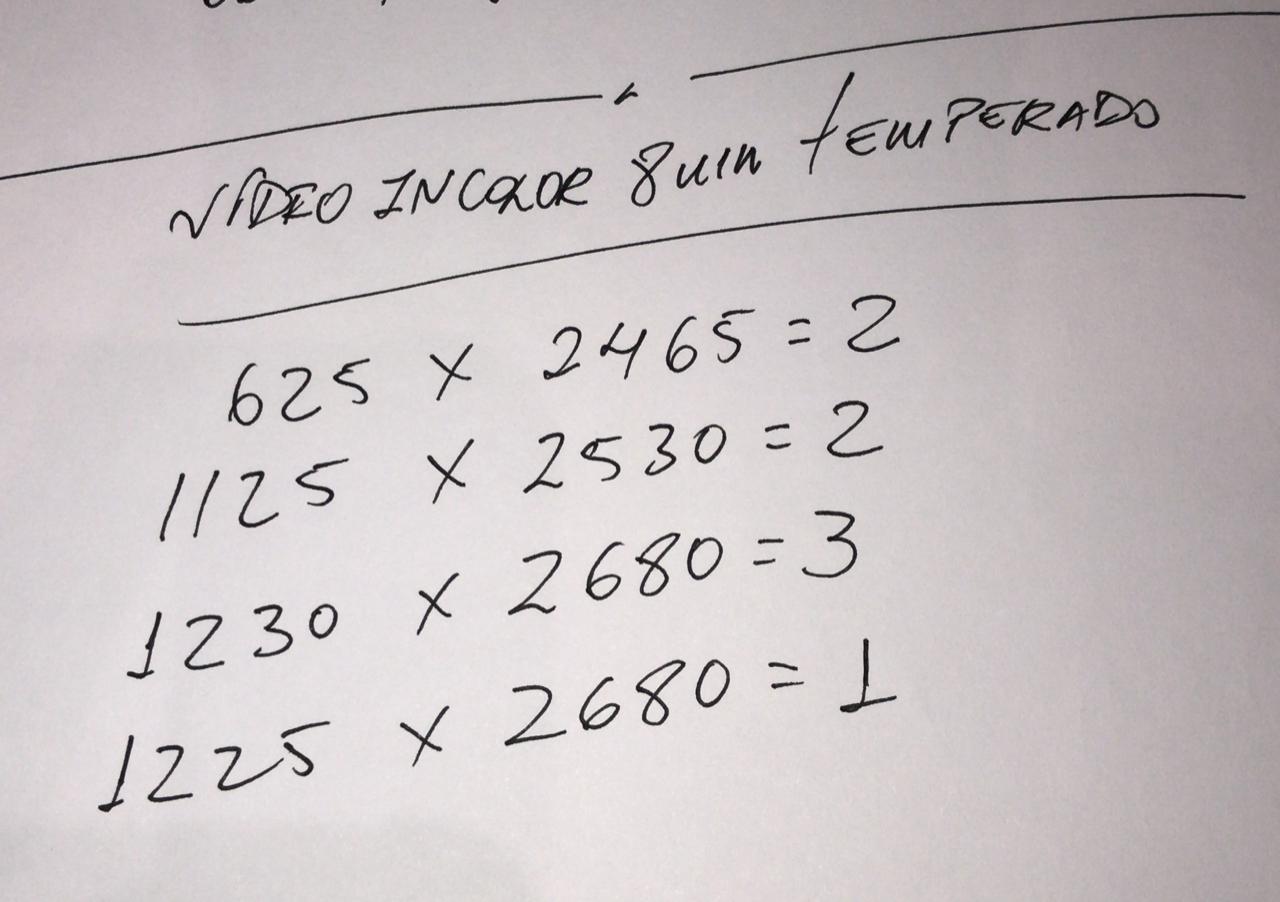 VIDEO INCOLOR 8mm TEMPERADO
625 X 2465 = 2
1125 X 2530 = 2
1230 X 2680 = 3
1225 X 2680 = 1